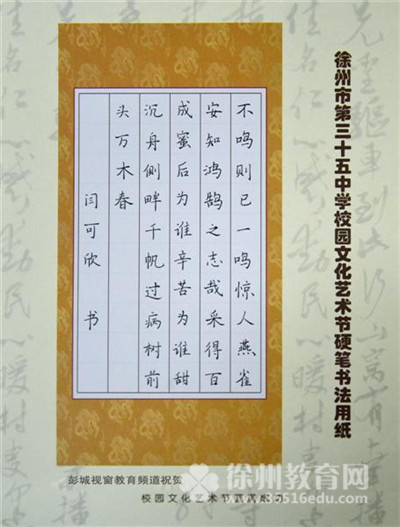 徐州市第三十五中学校园文化艺术节硬笔书法用纸
不鸣则已一鸣惊人燕雀
安知鸿鹄之志哉采得百
成蜜后为谁辛苦为谁甜
沉舟侧畔千帆过病树前
头万木春
闫可欣 书
彭城视窗教育频道祝
校园文化艺术节
徐州教育网
33516edu.com